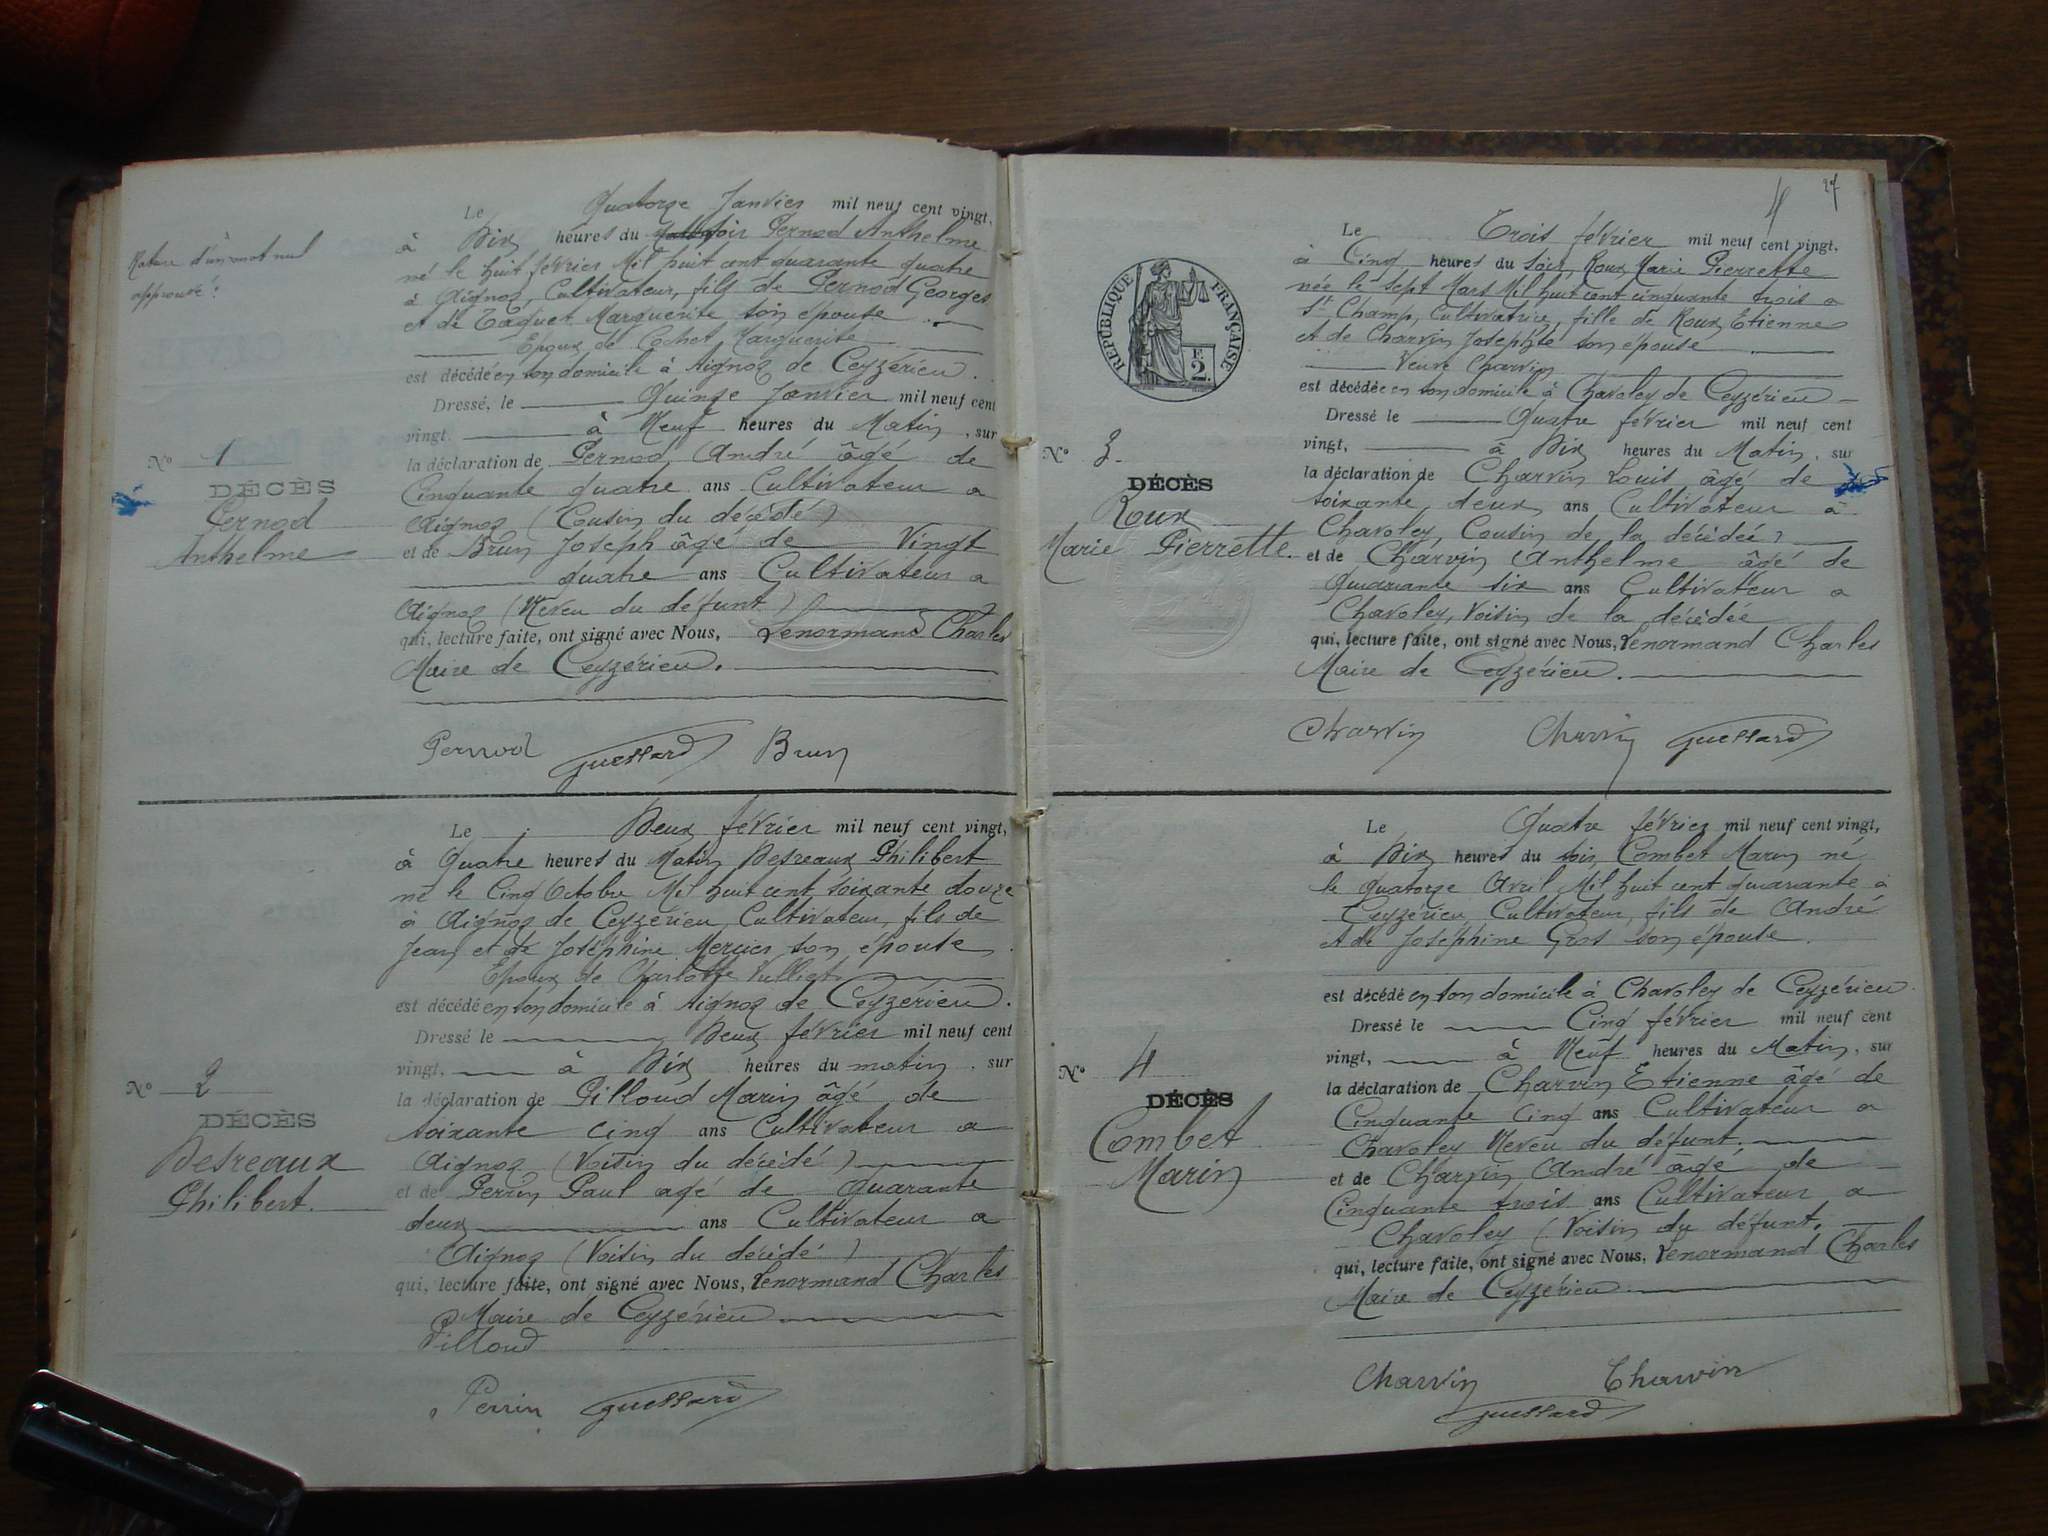 Rature d'un mot nul
approuvé :
Le Quatorze Janvier mil neuf cent vingt,
à Dix heures du soir Pernod Anthelme
né le huit février Mil huit cent quarante quatre
à Aignoz, Cultivateur, fils de Pernod Georges
et de Marguerite son épouse
Epoux de Cochet Marguerite
est décédé en son domicile à Aignoz de Ceyzérieu.
Dressé, le Quinze Janvier mil neuf cent
vingt à Neuf heures du Matin, sur
la déclaration de Pernod, André âgé de
Cinquante quatre ans Cultivateur a
Aignoz (Cousin du décédé)
et de Brun Joseph âgé de Vingt
quatre ans Cultivateur a
Aignoz (Neveu du défunt)
qui, lecture faite, ont signé avec Nous, Lenormand Charles
Maire de Ceyzérieu.
N° 1
DÉCÈS
Pernod
Anthelme
Pernod Guessard Brun
Le Deux février mil neuf cent vingt,
à Quatre heures du Matin Desreaux Philibert
né le Cinq Octobre Mil huit cent soixante douze
à Aignoz de Ceyzérieu, Cultivateur, fils de
Jean et de Joséphine Mercier son épouse
Epoux de Charlotte Vulliet
est décédé en son domicile à Aignoz de Ceyzérieu.
Dressé le Deux février mil neuf cent
vingt, à Dix heures du matin, sur
la déclaration de Pilloud Marin âgé de
soixante cinq ans Cultivateur a
Aignoz (Voisin du décédé)
et de Perrin Paul agé de Quarante
deux ans Cultivateur a
Aignoz (Voisin du décédé)
qui, lecture faite, ont signé avec Nous, Lenormand Charles
Maire de Ceyzérieu
N° 2
DÉCÈS
Desreaux
Philibert.
Pilloud
Perrin Guessard
4 27
RÉPUBLIQUE FRANÇAISE
F. 2.
Le Trois février mil neuf cent vingt,
à Cinq heures du Soir, Roux Marie Pierrette
née le sept Mars Mil huit cent cinquante trois a
St Champ, Cultivatrice, fille de Roux Etienne
et de Charvin Josephte son épouse
Veuve Charvin
est décédée en son domicile à Chavoley de Ceyzérieu
Dressé le Quatre février mil neuf cent
vingt, à Dix heures du Matin, sur
la déclaration de Charvin Louis âgé de
soixante deux ans Cultivateur à
Chavoley, Cousin de la décédée)
et de Charvin Anthelme âgé de
Quarante six ans Cultivateur a
Chavoley, Voisin de la décédée
qui, lecture faite, ont signé avec Nous, Lenormand Charles
Maire de Ceyzérieu.
N° 3.
DÉCÈS
Roux
Marie Pierrette.
Charvin Charvin Guessard
Le Quatre février mil neuf cent vingt,
à Dix heures du soir, Combet Marin né
le quatorze Avril Mil huit cent quarante à
Ceyzérieu, Cultivateur, fils de André
et de Joséphine Gros son épouse.
est décédé en son domicile à Chavoley de Ceyzérieu.
Dressé le Cinq février mil neuf cent
vingt, à Neuf heures du Matin, sur
la déclaration de Charvin Etienne âgé de
Cinquante cinq ans Cultivateur a
Chavoley Neveu du défunt.
et de Charvin André âgé de
Cinquante trois ans Cultivateur a
Chavoley (Voisin du défunt.
qui, lecture faite, ont signé avec Nous, Lenormand Charles
Maire de Ceyzérieu.
N° 4
DÉCÈS
Combet
Marin
Charvin Charvin
Guessard